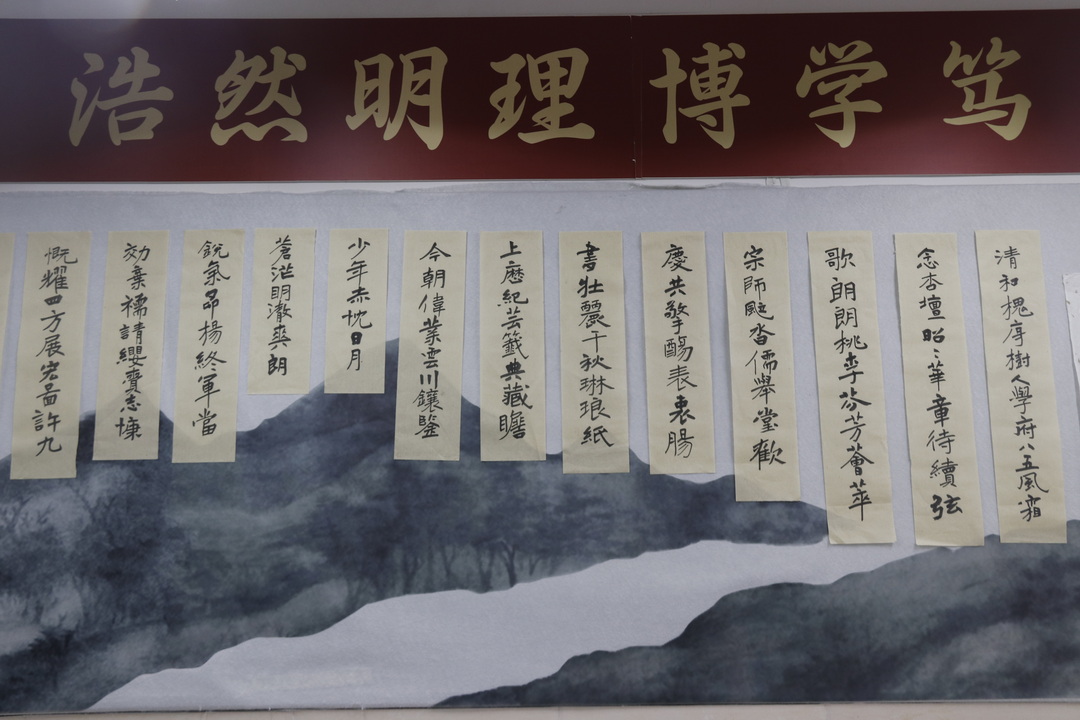 浩然明理博学笃
清和槐序樹人學府八五風霜
念杏壇昭〻華章待續弦
歌朗朗桃李芬芳薈萃
宗師沓儒舉堂歡
慶共擎觴表衷腸
書壯麗千秋琳琅紙
上歷紀芸籤典藏瞻
今朝偉業雲川鑲鑒
少年赤忱日月
蒼茫明澈爽朗
銳氣昂揚終軍當
効棄襦請纓賫志慷
慨耀四方展宏啚許九